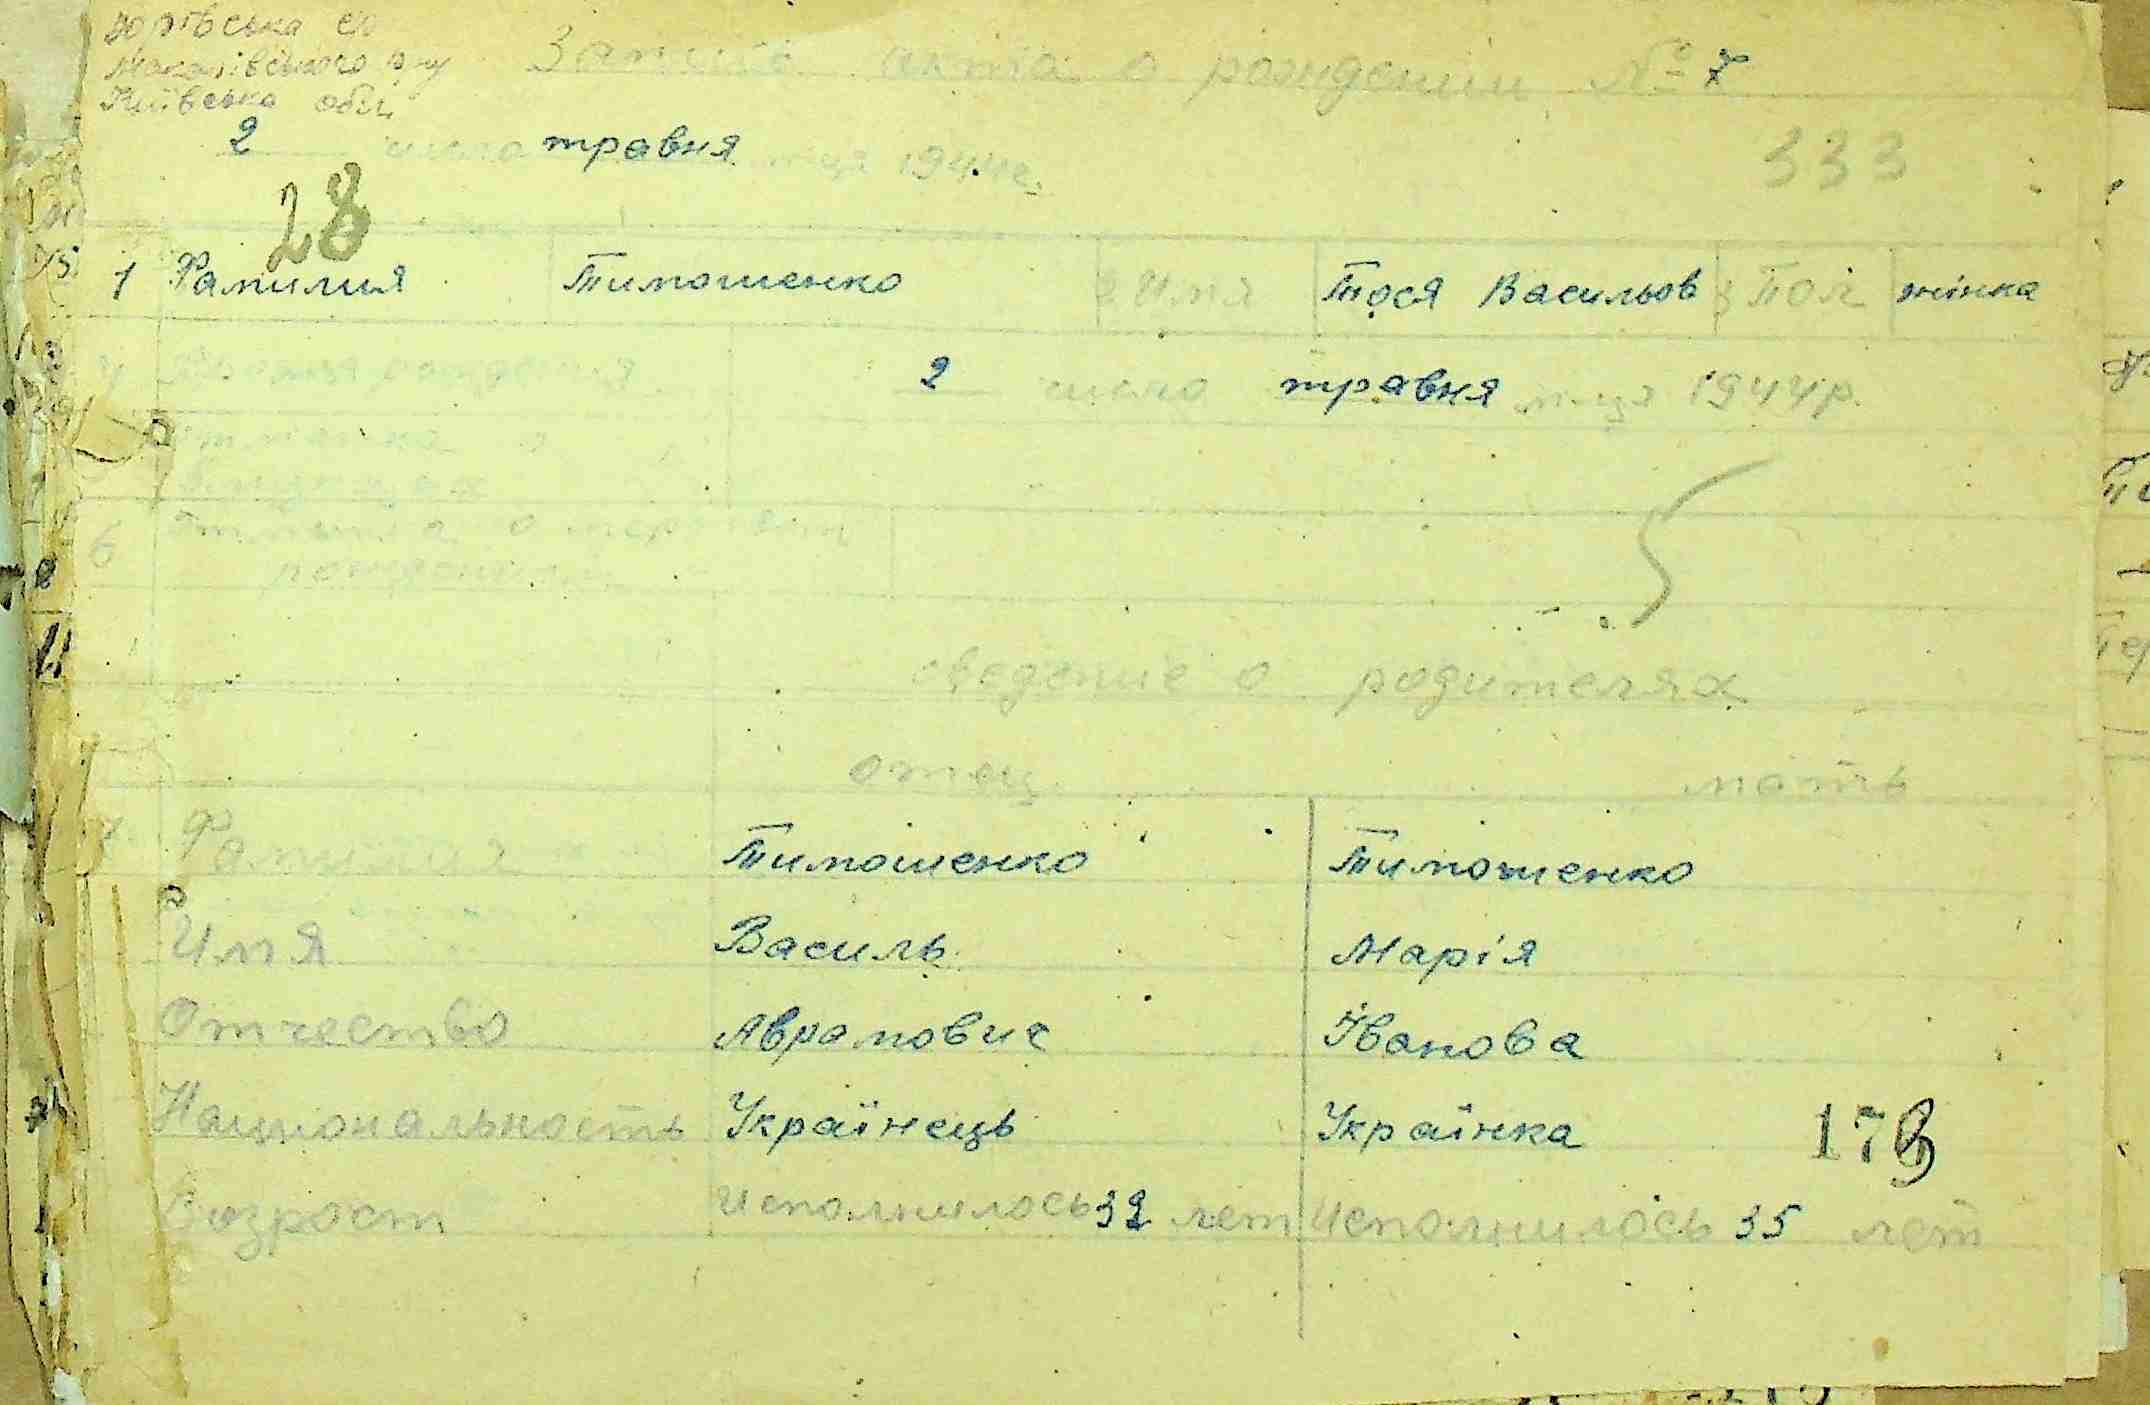 Юрівська с/р
Макарівського р-ну
Київська обл.
Запись акта о рождении № 7
2 число травня м-ця 1944г.
333
28
1 Фамилия Тимошенко 2 Имя Тося Васильов 3 Пол жінка
4 Время рождения 2 число травня м-ця 1944р.
Отметка о
6 Отметка о
рождении
сведение о родителях
отец мать
7 Фамилия Тимошенко Тимошенко
Имя Василь Марія
Отчество Аврамович Іванова
Национальность Українець Українка
179
Возраст Исполнилось 32 лет Исполнилось 35 лет